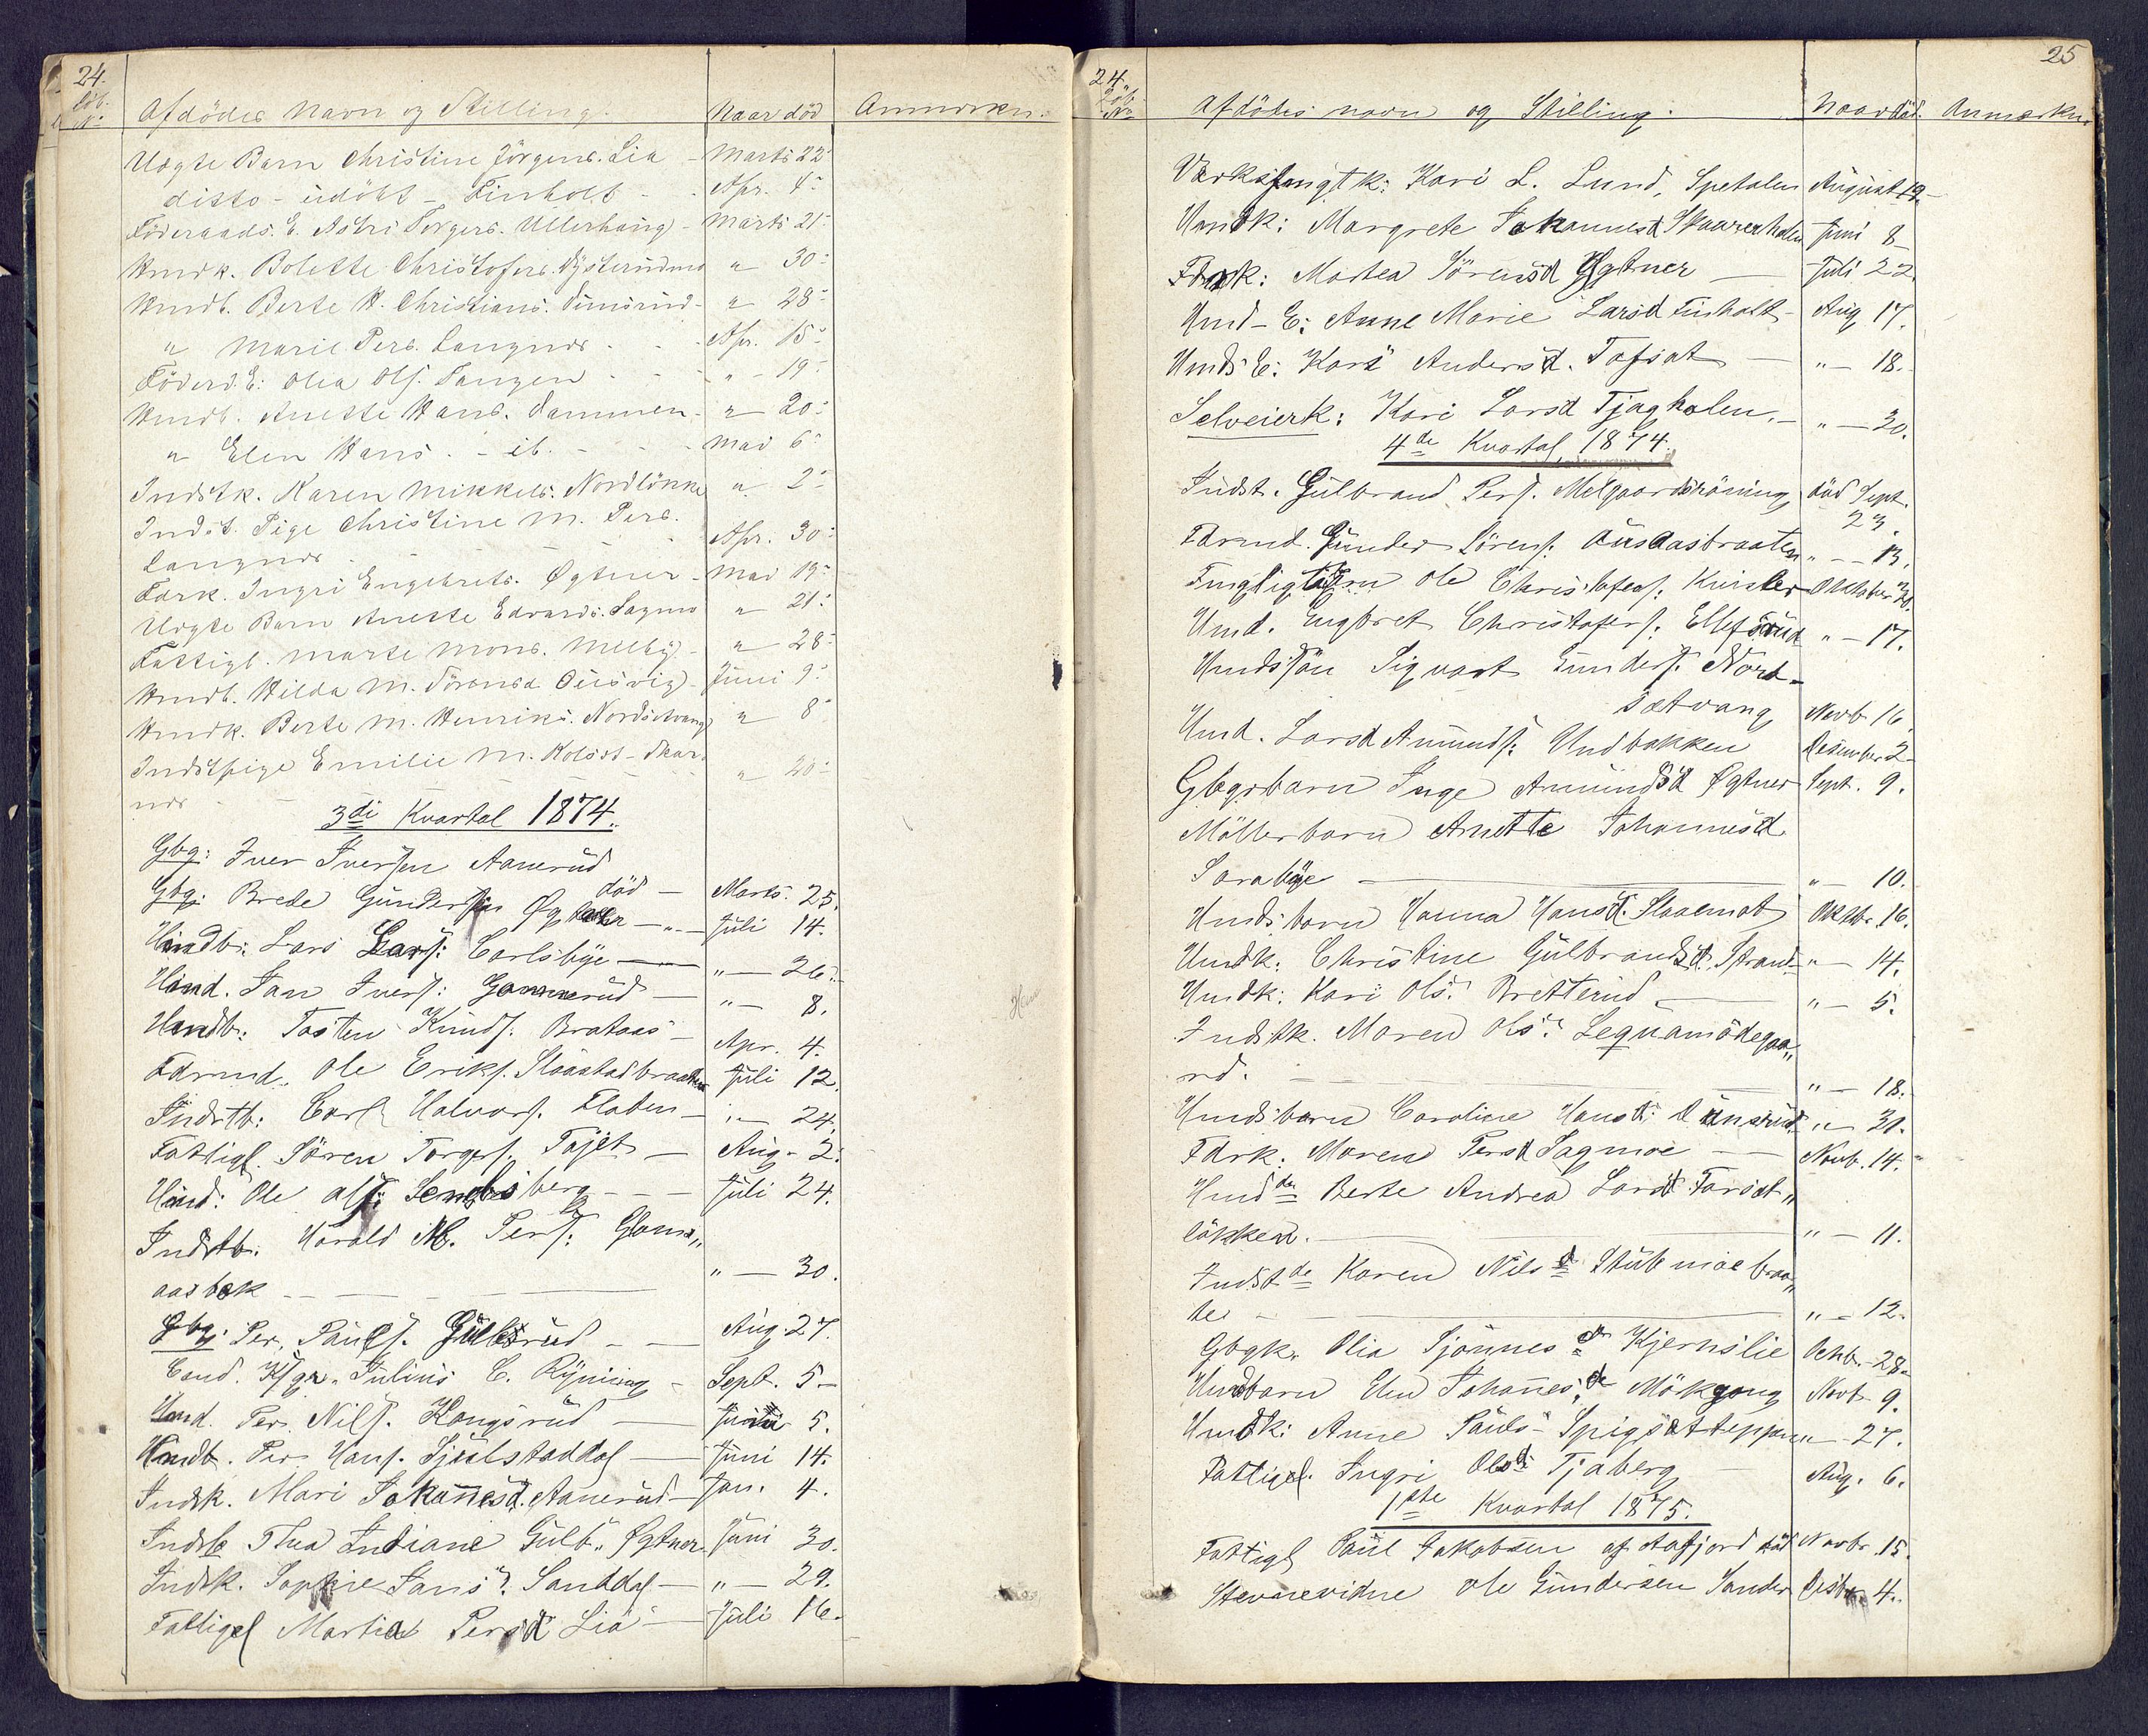 24.
Löb. No
Afdödes Navn og Stilling.
Naar död
Anmærkn.
Uægte Barn Christine Jörgens. Lia - Marts 22
ditto - udöbt - Finholt - - Apr. 4
Föderaads. E. Astri Torgers. Ullerhaug - Marts 21
Hmdk. Bolette Christofers. Dysterudmo " 30
Hmdb. Berte H. Christians. Dunsrud - " 28
" Marie Pers. Langnæs - - Apr. 15
Föderd. E: Olea Ols. Tangen - - " - 19
Hmdb. Anette Hans. Dammen - " 20
" Elen Hans. - ib. - - Mai 6
Indstk. Karen Mikkels. Nordlökke " 2
Indst. Pige Christine M. Pers.
Langnæs - - - Apr. 30
Fdrk. Ingri Engebrets. Øgtner - Mai 19
Uægte Barn Anette Edvards. Sagmo " 21
Fattigl. Marte Mons. Melby - " 28
Hmdb. Hilda M. Sörensd. Ousvig - Juni 9
Hmdk. Berte M. Henriks. Nordsetvang " 8
Indstpige Emilie M. Kolsst - Skar-
næs - - - " 20
3di Kvartal 1874.
Gbg: Iver Iversen Aanerud
död - Marts. 25.
Gbg. Brede Gundersen Øgtner - " - Juli 14.
Hmdb: Lars Lars: Carlsbye - " - 26.
Hmd. Jan Ivers: Gannerud - " - 8.
Hmdb: Tosten Knuds: Brataas - Apr. 4.
Fdrmd. Ole Eriks. Slaastadbraaten Juli 12.
Indstb: Carl Halvors. Floten - " - 24.
Fattigl. Sören Torgers. Tojet - Aug. 2.
Hmd: Ole Ols: Sengbsberg - - Juli 24.
Indstb. Harald M. Pers: Glom„
aasbak - - " - 30.
Gbg. Per Pauls. Gulbsrud - - Aug. 27.
Cand. Julius C. Ryning - Sept. 5 -
Hmd. Per Nils. Kongsrud - Juni 5.
Hmdb. Per Hans. Sjulstaddal - Juni 14.
Indk. Mari Johannesd. Aanerud - Jan. 4.
Indsb Thea Indiane Gulb. Øgtner. Juni 30.
Indsk. Sophie Jans d. Sanddal - " - 29.
Fattigl Martia Persd Lia - Juli 16.
24.
Löb. No
25
Afdödes navn og Stilling.
Naar död.
Anmærkn.
Værksfangtk: Kari L. Lund, Spetalen August 19 -
Hmdk: Margrete Johannesd Skaarerholen Juni 8
Fdrk: Martea Sörensd Øgtner - Juli 22.
Hmd - E: Anne Marie Larsd Finholt - Aug 17.
Hmds E: Kari Andersd. Tofsat - " - 18.
Selveierk: Kari Larsd Tjagholen. - " - 30.
4de Kvartal, 1874.
Indst. Gulbrand Pers. Melgaardshöning död Sept. 23.
Fdrmd. Gunder Sörens. Ausaasbraaten " - - 13.
Fattiglægsm Ole Christofers. Kvisler Oktober 30.
Hmd. Engbret Christofers. Ellefsrud " - 17.
Hmdssön Sigvart Gunders. Nord-
sætvang Novb 16
Hmd. Lars Amunds: Undbakken Desember 2
Gbgrbarn Inge Amundsd Øgtner Sept. 9.
Möllerbarn Anette Johannesd.
Sorabye - " - 10.
Hmdsbarn Hanna Hansd. Slaaemot Oktbr. 16.
Hmdk. Christine Gulbrandsd. Strand - " - 14.
Hmdk: Kari Ols. Bretterud - " - 5.
Indstk. Maren Ols. Lequamödegaa„
rd. - " - 18.
Hmdsbarn Caroline Hansd: Dunsrud " - 30.
Fdrk: Maren Persd Sagmoe - - Novb. 14.
Hmdda Berte Andrea Larsd. Forset„
lökken. - " - 11.
Indstde Karen Nilsd Stubmoebraa„
te - " - 12.
Gbgk. Olia Sjönnesd Kjernslie Oktb. 28.
Hmdbarn Elen Johannesd Mökgong Novb 9.
Hmdk: Anne Pauls - Spigsætteppen " - 27.
Fattigl. Ingri Olsd: Tjaberg - Aug. 6.
1ste Kvartal 1875.
Fattigl Paul Jakobsen af Aafjord död Novbr. 15.
Stevnevidne Ole Gundersen Sander Desbr. 4.